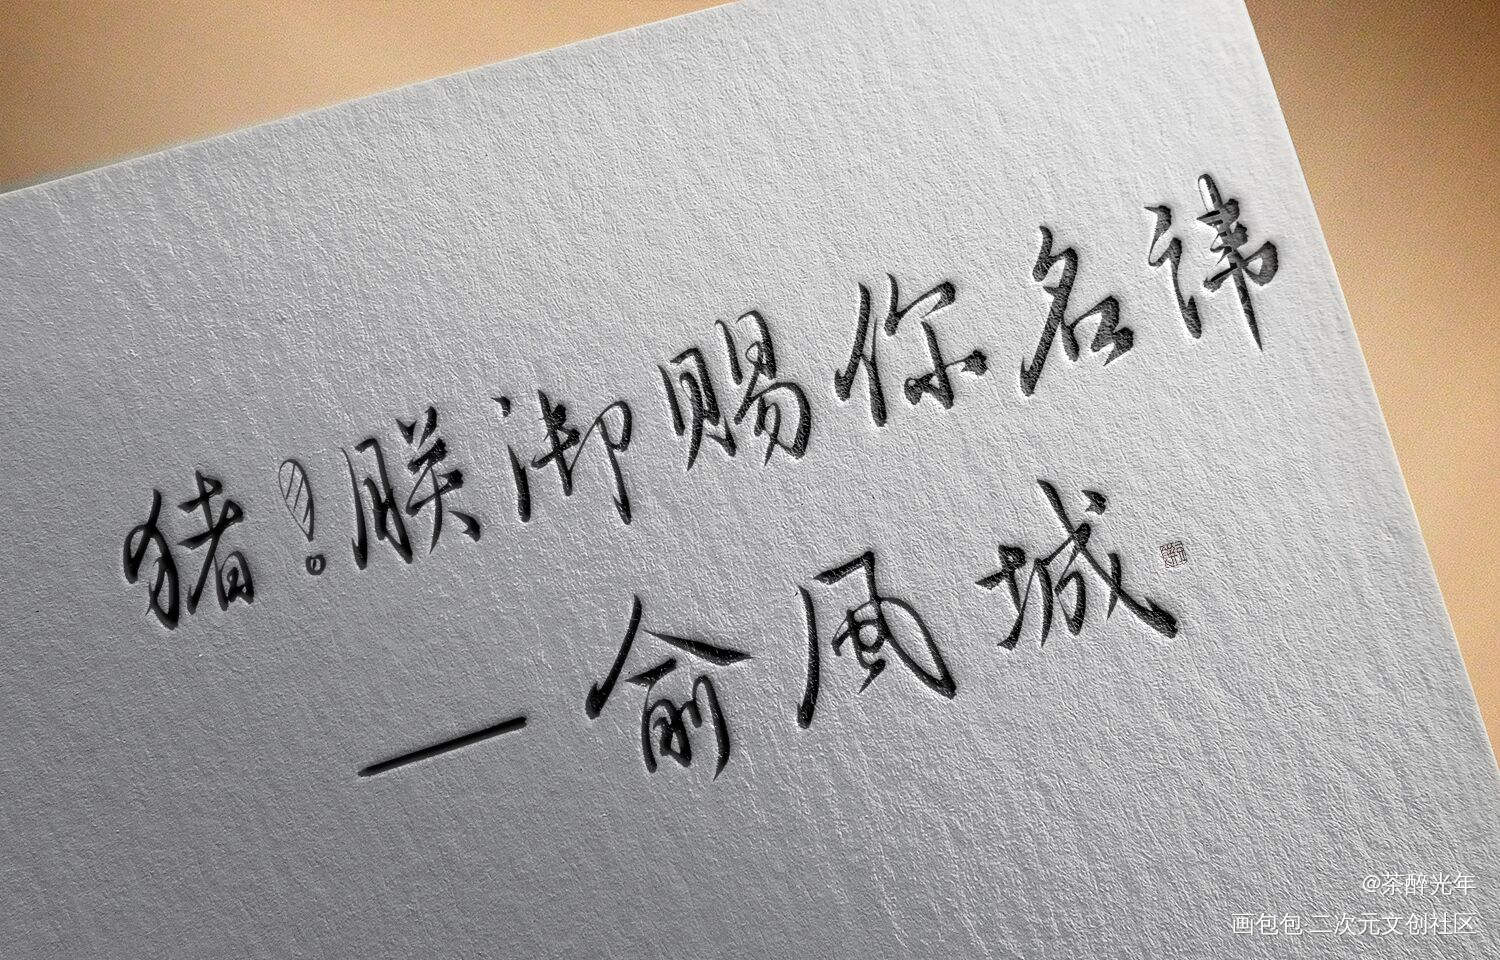 猪！朕御赐你名讳
—俞風城
@茶醉光年
画包包 二次元文创社区